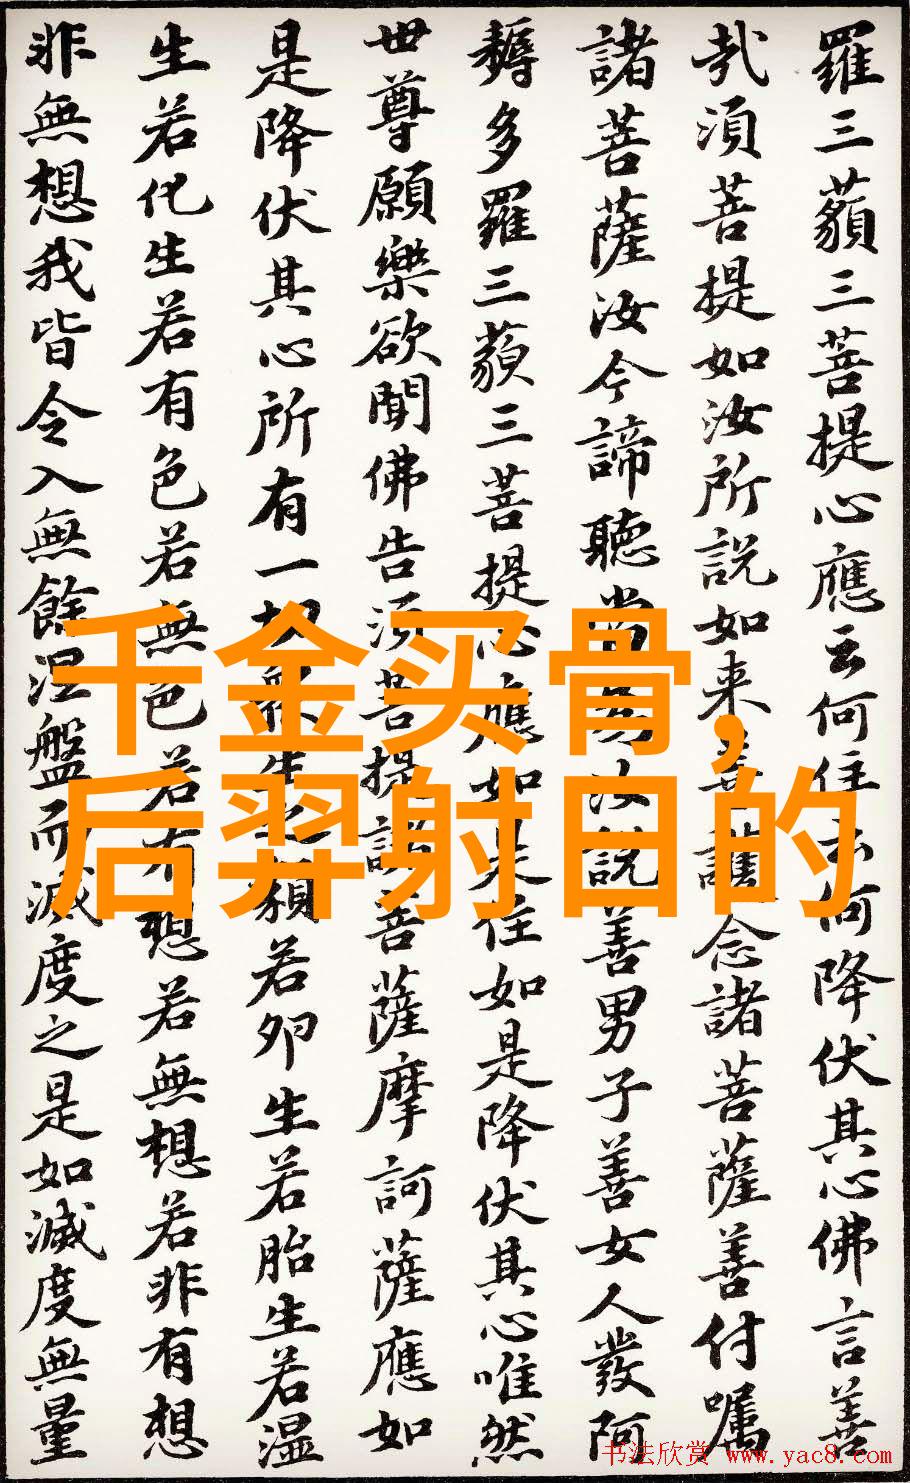 羅三藐三菩提心應云何住云何降伏其心佛言善
哉須菩提如汝所說如来善護念諸菩薩善付嘱
諸菩薩汝今諦聽當為汝說善男子善女人發阿
耨多羅三藐三菩提心應如是住如是降伏其心唯然
世尊願樂欲聞佛告須菩提諸菩薩摩訶薩應如
是降伏其心所有一切衆生之類若卵生若胎生若温
生若化生若有色若無色若有想若無想若非有想
非無想我皆令入無餘涅盤而滅度之是如滅度無量
千金买骨,
后羿射目的
书法欣赏 www.yac8.com